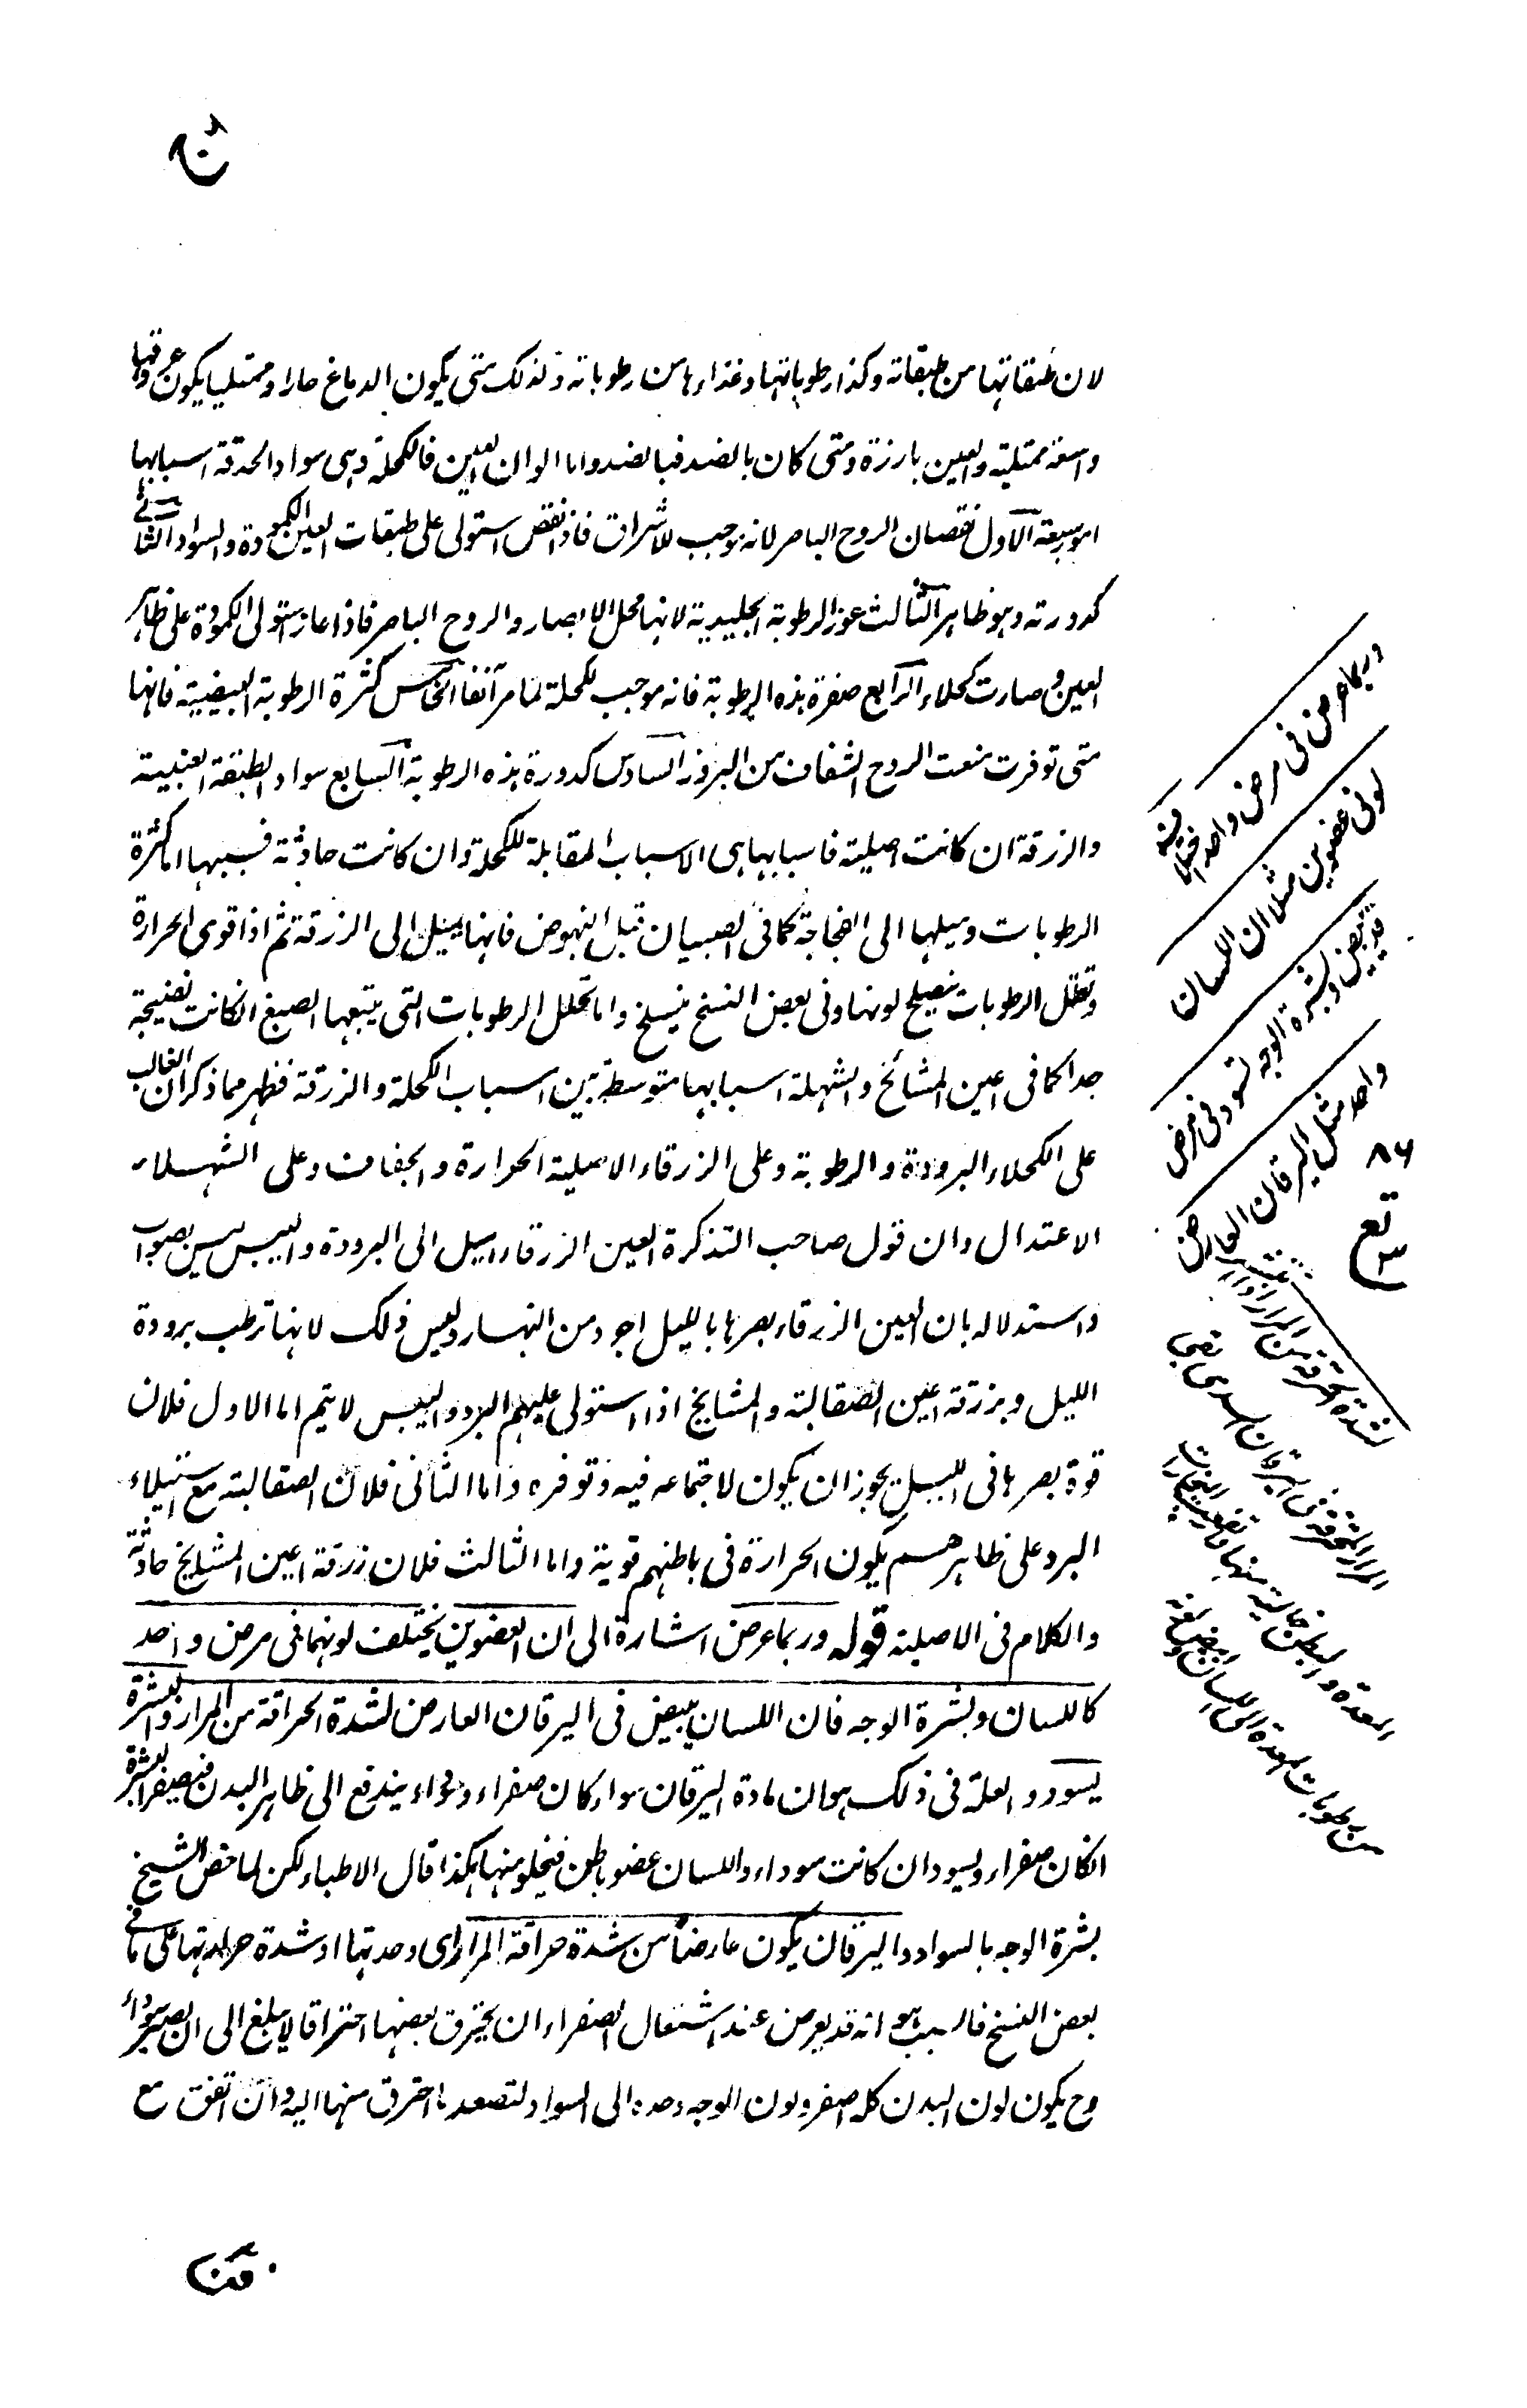 لان طبقاتها من طبقاته وكذا رطوباتها وغذاءها من رطوباته ولذلك متى يكون الدماغ حارا وممتليا يكون عروقها
واسعة ممتلية والعين بارزة ومتى كان بالضد فبالضد واما الوان العين فالكحلة وهى سواد الحدقة اسبابها
امور سبعة الاول نقصان الروح الباصر لانه موجب للاشراق فاذا نقص استولى على طبقات العين الكمودة والسواد الثانى
كدورته وهو ظاهر الثالث عوز الرطوبة الجليدية لانها محل الابصار والروح الباصر فاذا عاز استولى الكمودة على ظاهر
العين وصارت كحلاء الرابع صغر هذه الرطوبة فانه موجب لكحلة لما مر آنفا الخامس كثرة الرطوبة البيضية فانها
متى توفرت منعت الروح الشفاف من البروز السادس كدورة هذه الرطوبة السابع سواد الطبقة العنبية
والزرقة ان كانت اصلية فاسبابها هى الاسباب المقابلة للكحلة وان كانت حادثة فسببها اما كثرة
الرطوبات وميلها الى الفجاجة كما فى الصبيان قبل النهوض فانها يميل الى الزرقة ثم اذا قوى الحرارة
وتقلل الرطوبات يصلح لونها وفى بعض النسخ ينسلخ واما تحلل الرطوبات التى يتبعها الصبغ انكانت نضيجة
جدا كما فى اعين المشائخ والشهلة اسبابها متوسطة بين اسباب الكحلة والزرقة فظهر مما ذكر ان الغالب
على الكحلاء البرودة والرطوبة وعلى الزرقاء الاصلية الحرارة والجفاف وعلى الشهلاء
الاعتدال وان قول صاحب التذكرة العين الزرقاء اميل الى البرودة واليبس ليس بصواب
واستدلاله بان العين الزرقاء بصرها بالليل اجود من النهار وليس ذلك لانها ترطب برودة
الليل وبزرقة اعين الصقالبة والمشايخ اذا استولى عليهم البرد واليبس لا يتم اما الاول فلان
قوة بصرها فى الليل يجوز ان يكون لاجتماعه فيه وتوفره واما الثانى فلان الصقالبة مع استيلاء
البرد على ظاهرهم يكون الحرارة فى باطنهم قوية واما الثالث فلان زرقة اعين المشايخ حادثة
والكلام فى الاصلية قوله وربما عرض اشارة الى ان العضوين يختلف لونهما فى مرض واحد
كاللسان وبشرة الوجه فان اللسان يبيض فى اليرقان العارض لشدة الحراقة من المرار والبشرة
يسود والعلة فى ذلك هو ان مادة اليرقان سواء كان صفراء او سوداء يندفع الى ظاهر البدن فيصفر البشرة
انكان صفراء ويسود ان كانت سوداء واللسان عضو باطن فيخلو منها هكذا قال الاطباء لكن لما خص الشيخ
بشرة الوجه بالسواد واليرقان يكون عارضا من شدة حراقة المرار اى وحدتها او شدة حرارتها على ما فى
بعض النسخ فالسبب هو انه قد يعرض عند اشتعال الصفراء ان يحترق بعضها احتراقا لا يبلغ الى ان يصير سوداء
وح يكون لون البدن كله اصفر ولون الوجه وحده الى السواد لتصعد ما احترق منها اليه وان اتفق مع
وربما عرض فى مرض واحد اختلاف
لونى عضوين مثلا ان اللسان
قد يبيض وبشرة الوجه تسود فى مرض
واحد مثل اليرقان العارض
لشدة الحرقة من المرار
٨٦